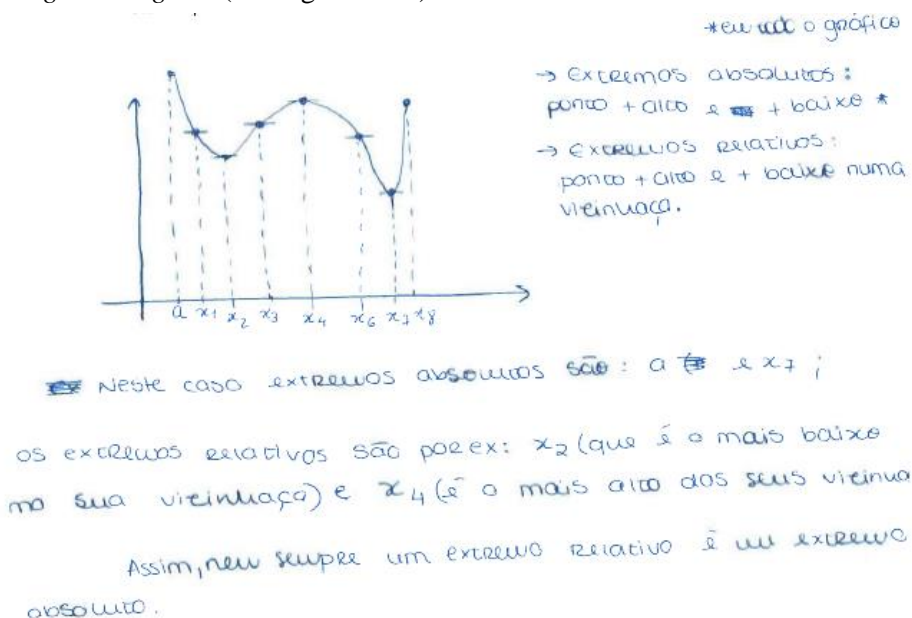 *eu todo o gráfico
→ Extremos absolutos:
ponto + alto e + baixo *
→ Extremos relativos:
ponto + alto e + baixo numa
vizinhaça.
a x1 x2 x3 x4 x6 x7 x8
Neste caso extremos absolutos são: a e x7;
os extremos relativos são por ex: x2 (que é o mais baixo
na sua vizinhaça) e x4 (é o mais alto dos seus vizinho
Assim, nem sempre um extremo relativo é um extremo
absoluto.